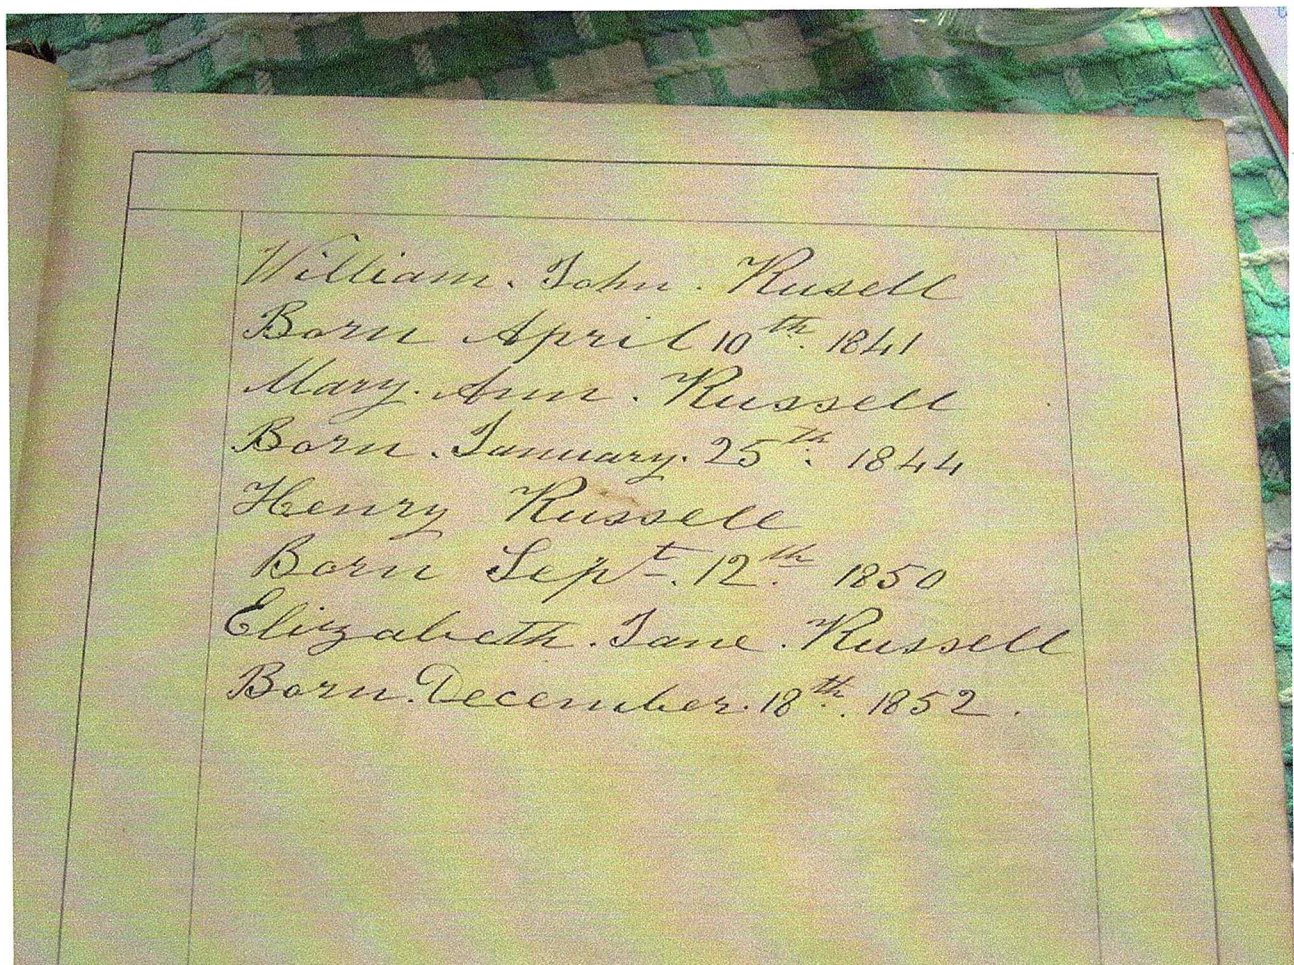 William. John. Rusell
Born April 10th. 1841
Mary. Ann. Russell
Born. January. 25th. 1844
Henry Russell
Born Sept. 12th. 1850
Elizabeth. Jane. Russell
Born. December. 18th. 1852.